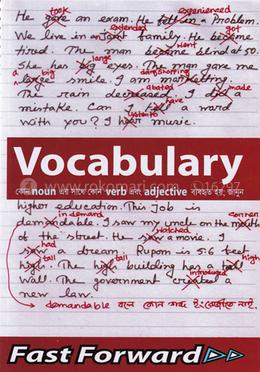 took experienced
He gave an exam. He fell in a Problem.
extended got
We live in a Joint family. He became
went
tired. The man became blind at 50.
large
She has big eyes. The man gave me
a large smile. I am marketing.
abated made
The rain decreased. I did a
have
mistake. Can I tell a word
listen to
with you? I hear music.
Vocabulary
কোন noun এর সাথে কোন verb এবং adjective ব্যবহৃত হয়, জানুন
rokomari.com
higher education. This Job is
in demand corner
demandable. I saw my uncle on the mouth
watched
of the street. He saw a movie. I
had tall high
saw a dream. Rupom is 5.6 feet
tall
high. The high building has a tall
introduced
wall. The government created a
new law.
demandable বলে কোন শব্দ
Fast Forward